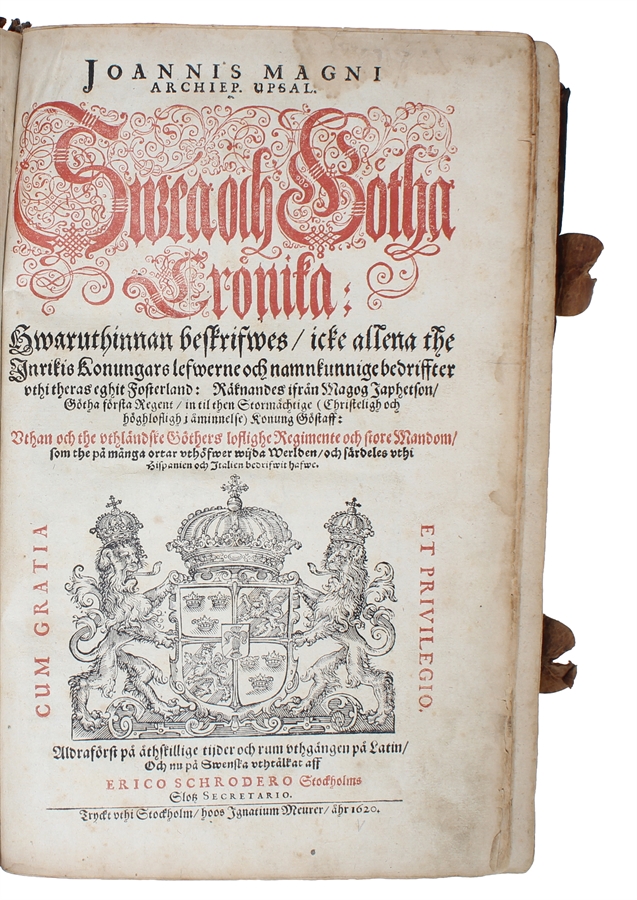 JOANNIS MAGNI
ARCHIEP. UPSAL.
Swea och Götha
Crönika:
Hwaruthinnan beskrifwes / icke allena the
Inrikis Konungars lefwerne och namnkunnige bedriffter
vthi theras eghit Fosterland: Räknandes ifrån Magog Japhetson/
Götha första Regent / in til then Stormächtige (Christeligh och
höghlofligh i åminnelse) Konung Göstaff:
Vthan och the vthländske Göthers loflighe Regimente och store Mandom/
som the på många ortar vthöfwer wijda Werlden/ och särdeles vthi
Hispanien och Italien bedrifwit hafwe.
CUM GRATIA
ET PRIVILEGIO.
Aldraförst på åthskillige tijder och rum vthgången på Latin/
Och nu på Swenska vthtålkat aff
ERICO SCHRODERO Stockholms
Sloß SECRETARIO.
Tryckt vthi Stockholm/ hoos Ignatium Meurer/ åhr 1620.
6